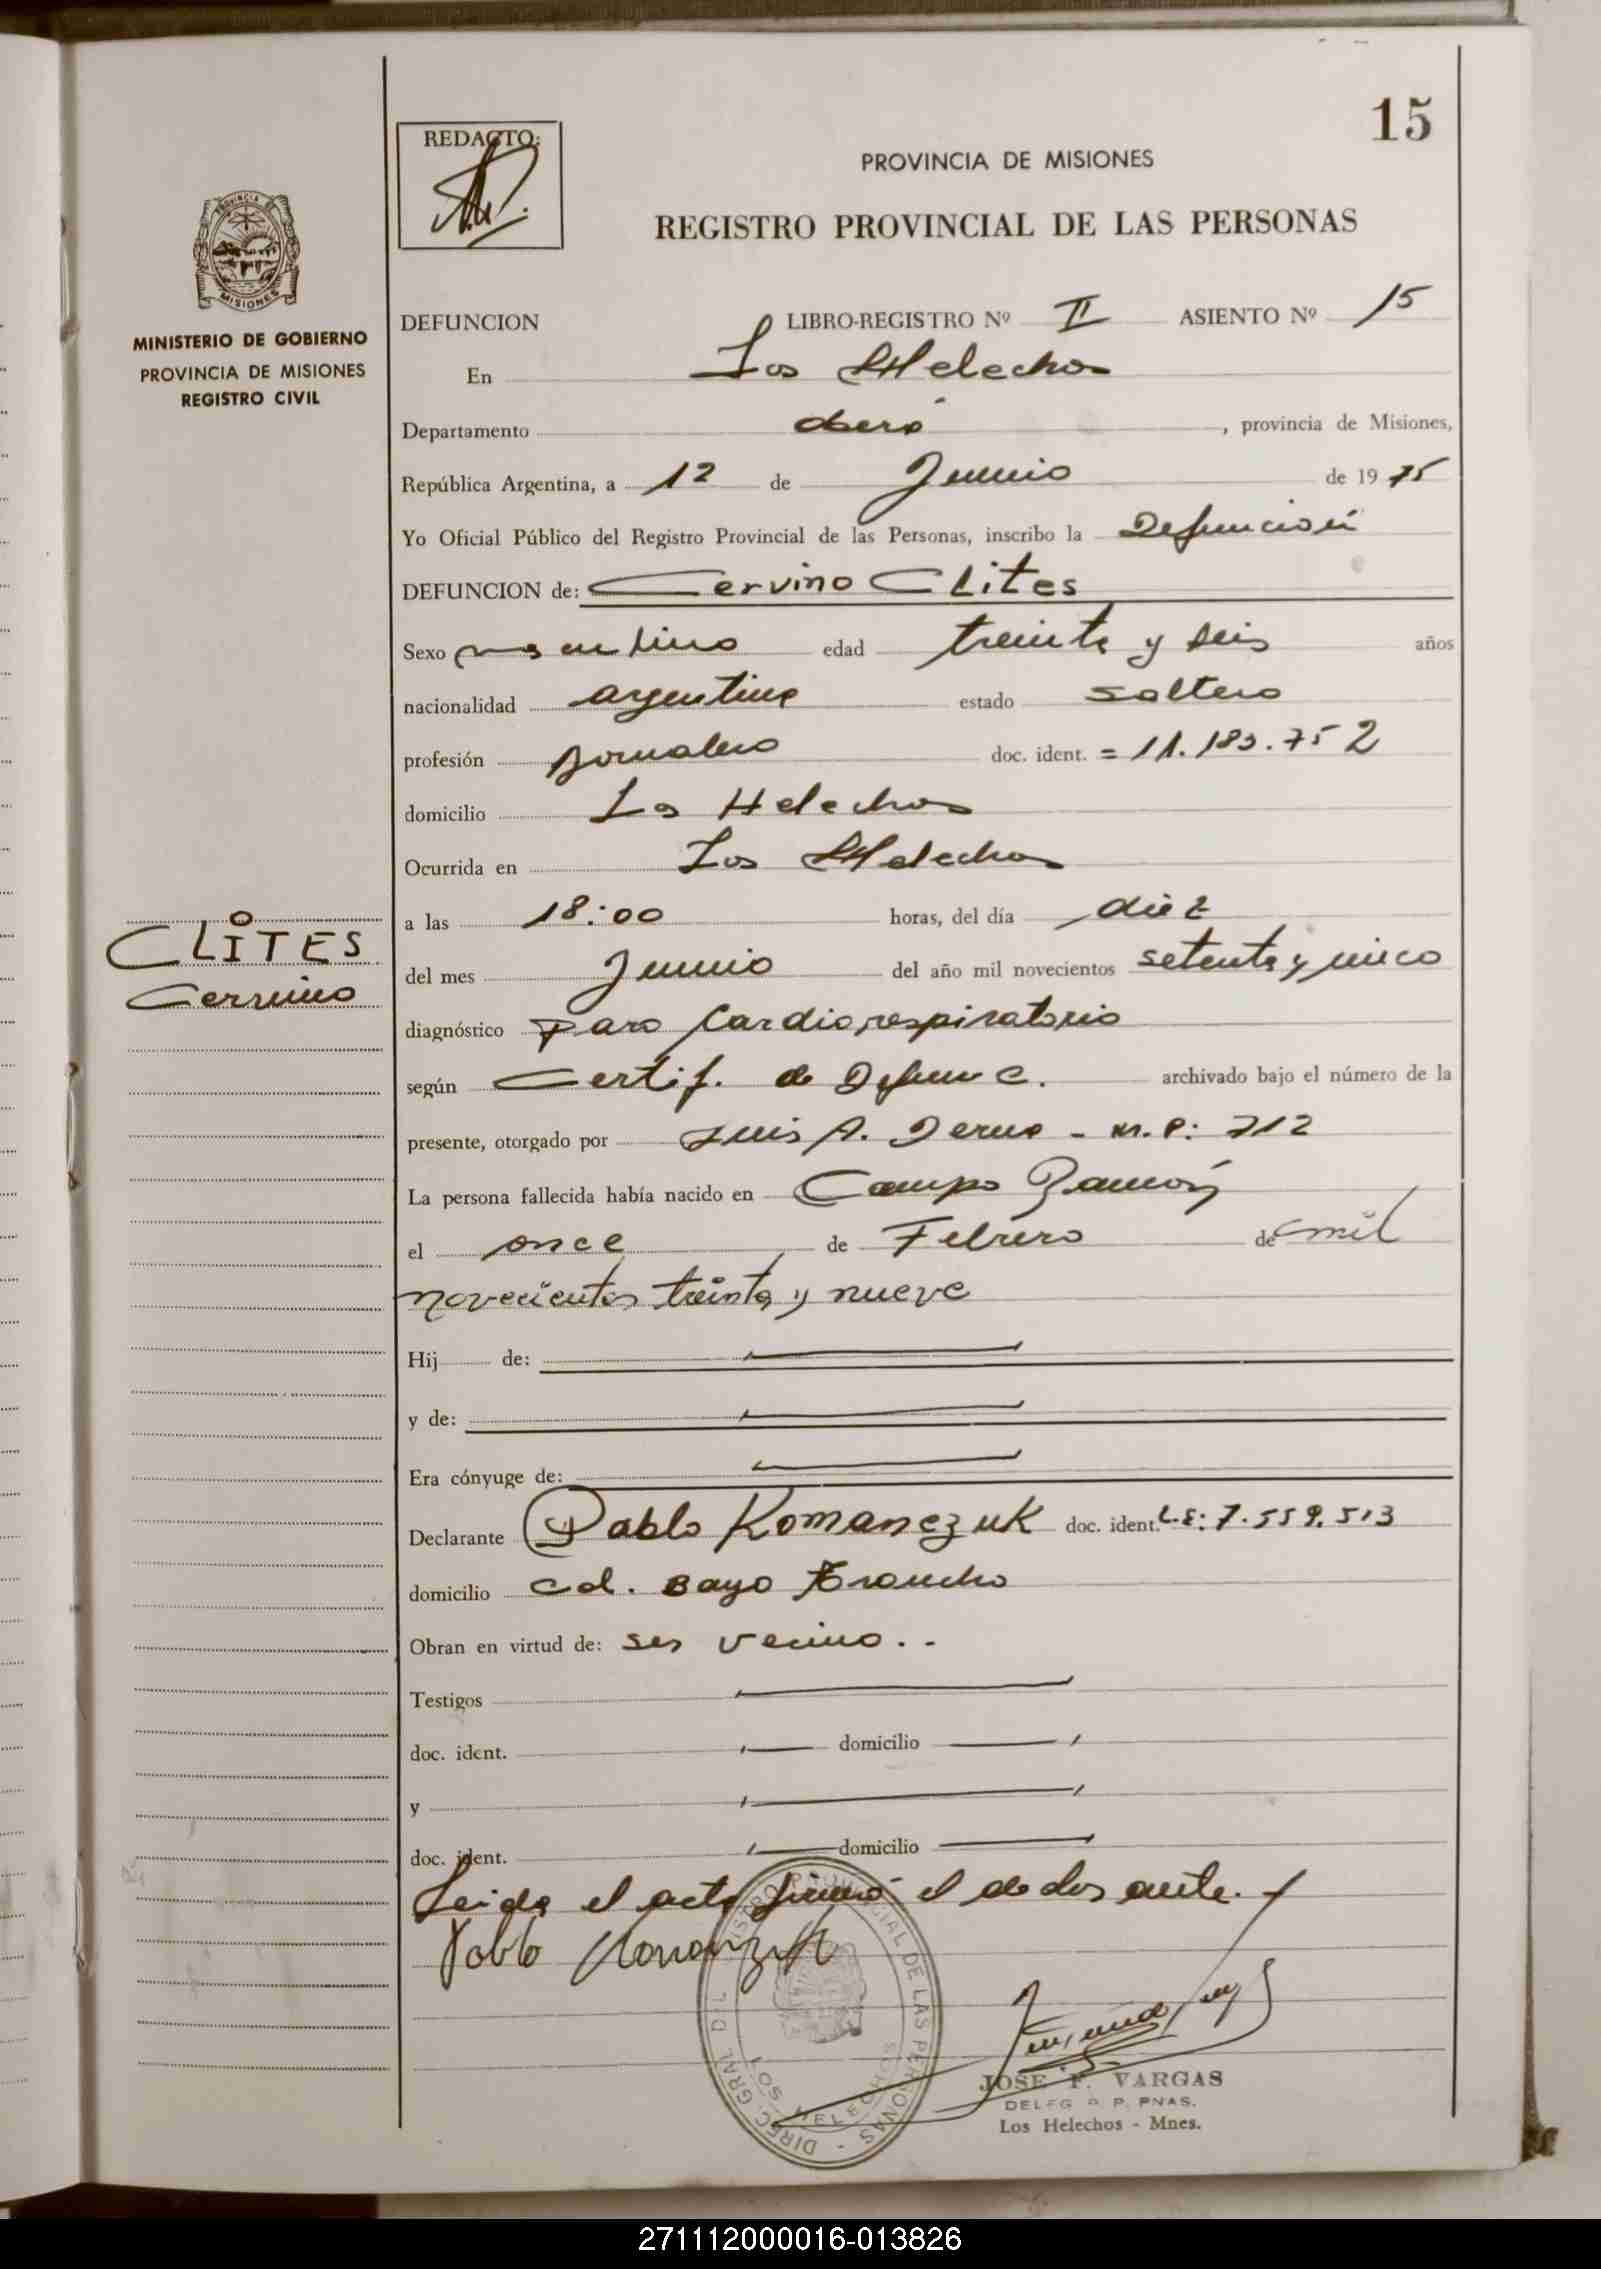 15
REDACTO:
PROVINCIA DE MISIONES
REGISTRO PROVINCIAL DE LAS PERSONAS
MISIONES
MINISTERIO DE GOBIERNO
PROVINCIA DE MISIONES
REGISTRO CIVIL
DEFUNCION LIBRO-REGISTRO Nº II ASIENTO Nº 15
En Los Helechos
Departamento Oberá, provincia de Misiones,
República Argentina, a 12 de Junio de 1975
Yo Oficial Público del Registro Provincial de las Personas, inscribo la Defunción
DEFUNCION de: Cervino CLites
Sexo masculino edad treinta y seis años
nacionalidad argentina estado soltero
profesión Jornalero doc. ident. = 11.183.752
domicilio Los Helechos
Ocurrida en Los Helechos
a las 18:00 horas, del día diez
CLITES
Cervino
del mes Junio del año mil novecientos setenta y cinco
diagnóstico Paro Cardiorespiratorio
según Certif. de Defunc. archivado bajo el número de la
presente, otorgado por Luis A. - M.P: 712
La persona fallecida había nacido en Campo Ramón
el once de Febrero de mil
novecientos treinta y nueve
Hij de:
y de:
Era cónyuge de:
Declarante Pablo Romanczuk doc. ident. L.E: 7.559.513
domicilio Col. Bayo Troncho
Obran en virtud de: ser vecino..
Testigos
doc. ident. domicilio
y
doc. ident. domicilio
Leida el acta firmó el declarante.
Pablo Romanczuk
DIREC. GRAL. DEL REGISTRO PROVINCIAL DE LAS PERSONAS -
LOS HELECHOS
JOSE F. VARGAS
DELEG. R. P. PNAS.
Los Helechos - Mnes.
271112000016-013826